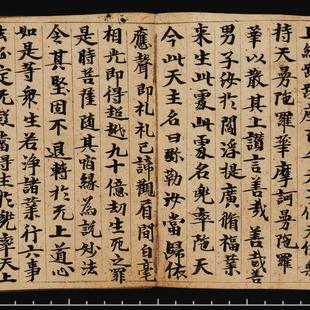 持天曼陁羅華摩訶曼陁羅
華以散其上讃言善哉善哉
男子汝於閻浮提廣脩福業
来生此處此處名兜率陁天
今此天主名曰弥勒汝當歸依
應聲即礼礼已諦觀眉間白毫
相光即得超越九十億劫生死之罪
是時菩薩隨其宿緣為説妙法
令其堅固不退轉於无上道心
如是等衆生若淨諸業行六事
法必定无疑當得生於兜率天上